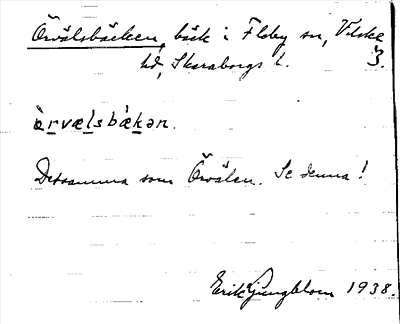 Örvälsbäcken, bäck i Floby sn, Vilske
hd, Skaraborgs l. 3.
ö̀rvælsbækən.
Detsamma som Örvälen. Se denna!
Erik Ljungblom 1938.